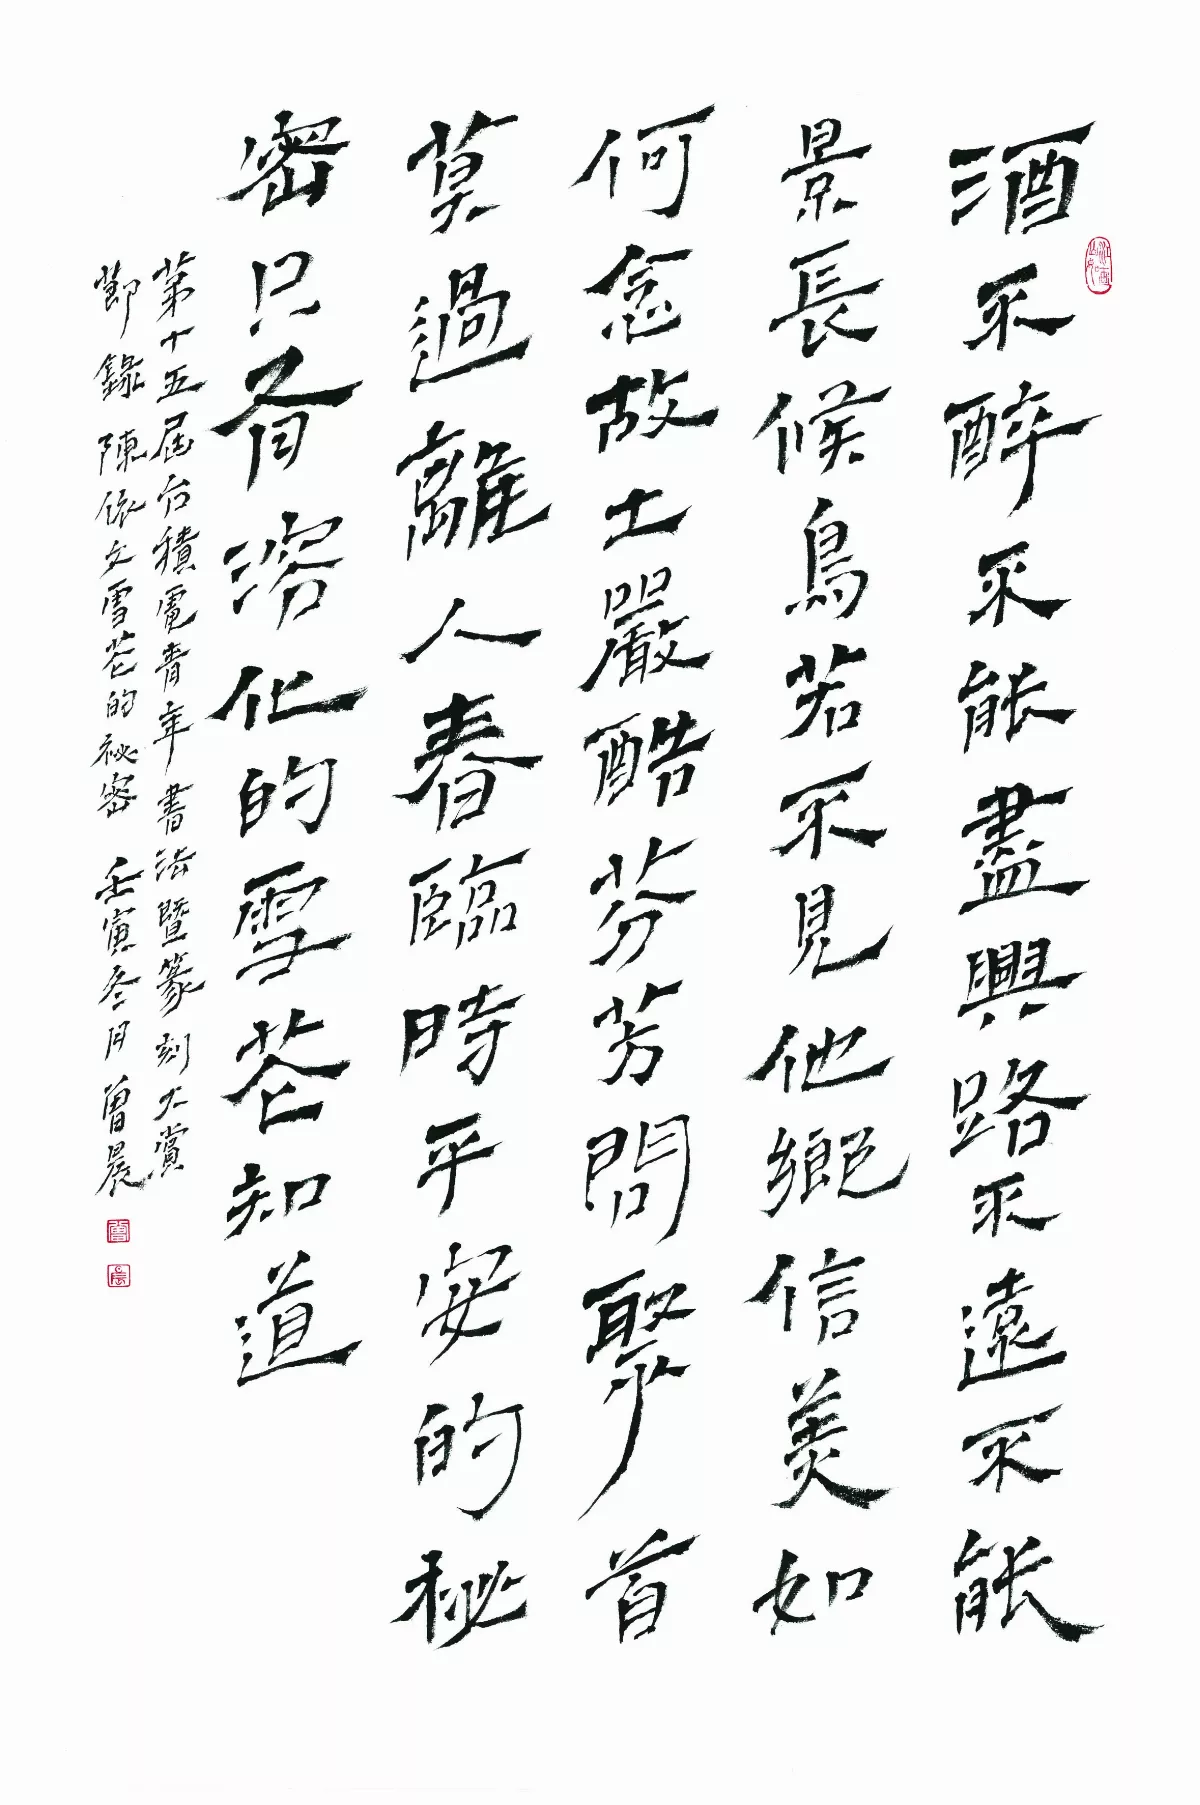 酒不醉不能盡興路不遠不能
景長候鳥若不見他鄉信美如
何念故土嚴酷芬芳問聚首
莫過離人春臨時平安的秘
密只有溶化的雪花知道
第十五屆台積電青年書法暨篆刻大賞
節錄陳依文雪花的祕密 壬寅冬月曾晨